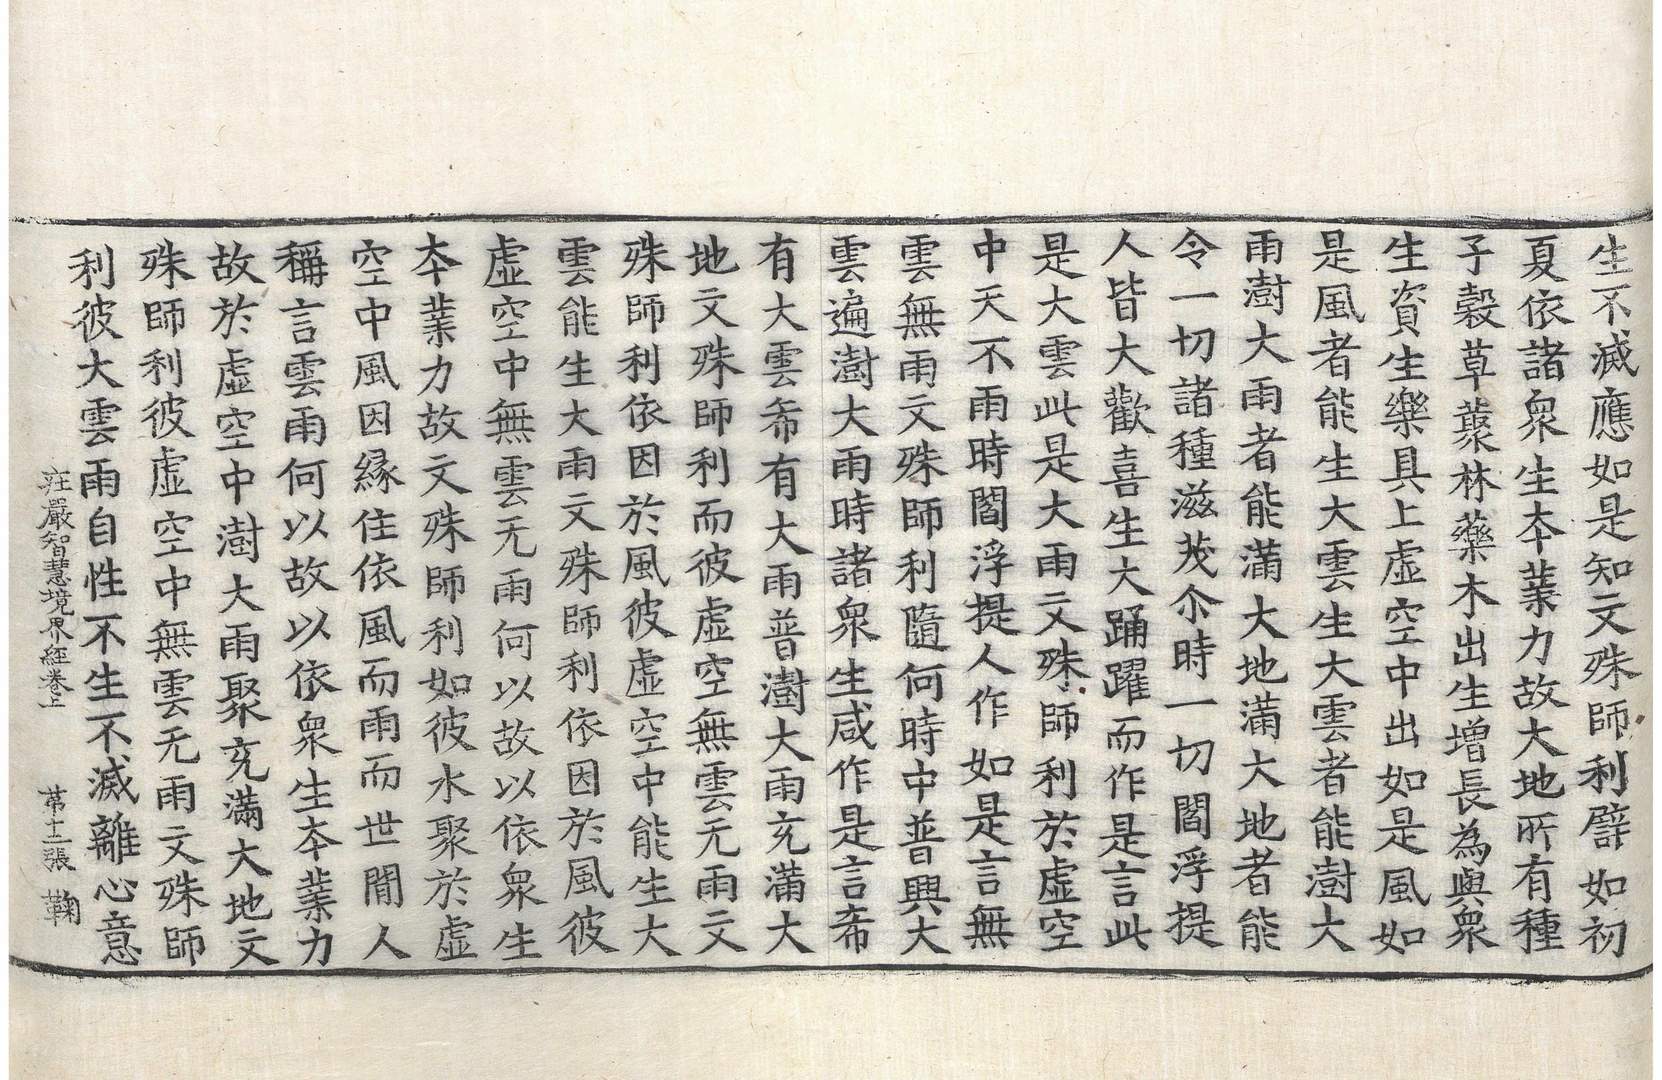 生不滅應如是知文殊師利譬如初
夏依諸衆生本業力故大地所有種
子穀草藂林藥木出生增長為與衆
生資生樂具上虛空中出如是風如
是風者能生大雲生大雲者能澍大
雨澍大雨者能滿大地滿大地者能
令一切諸種滋茂尒時一切閻浮提
人皆大歡喜生大踊躍而作是言此
是大雲此是大雨文殊師利於虛空
中天不雨時閻浮提人作如是言無
雲無雨文殊師利隨何時中普興大
雲遍澍大雨時諸衆生咸作是言希
有大雲希有大雨普澍大雨充滿大
地文殊師利而彼虛空無雲无雨文
殊師利依因於風彼虛空中能生大
雲能生大雨文殊師利依因於風彼
虛空中無雲无雨何以故以依衆生
本業力故文殊師利如彼水聚於虛
空中風因緣住依風而雨而世間人
稱言雲雨何以故以依衆生本業力
故於虛空中澍大雨聚充滿大地文
殊師利彼虛空中無雲无雨文殊師
利彼大雲雨自性不生不滅離心意
莊嚴智慧境界經卷上 第十二張 鞠